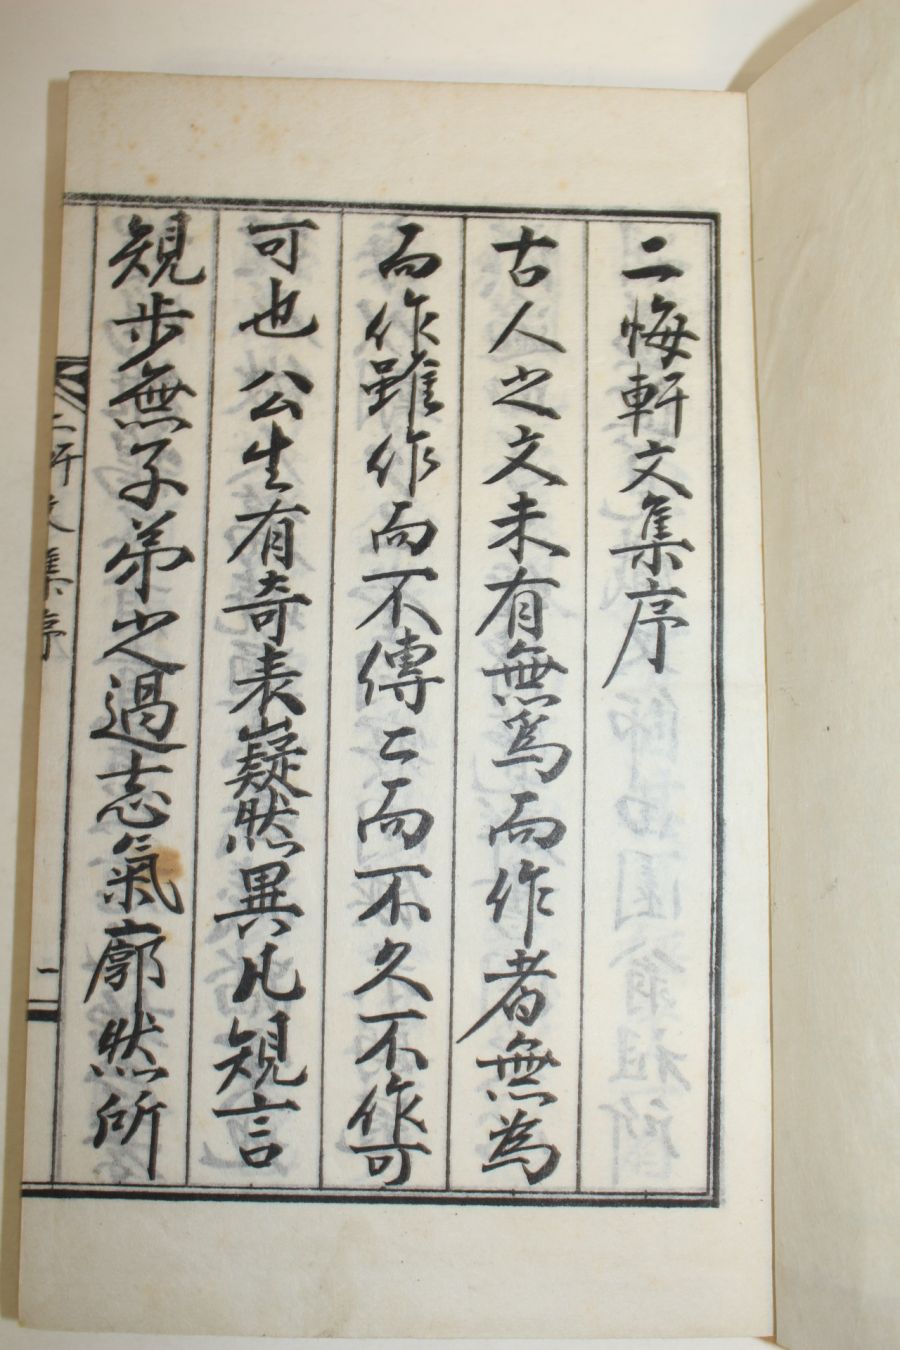 二悔軒文集序
古人之文未有無爲而作者無爲
而作雖作而不傳亡而不久不作可
可也公生有奇表嶷然異凡規言
規步無子弟之過志氣廓然所
二軒文集序
一